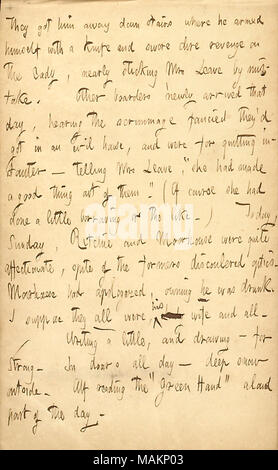 They got him away down stairs where he armed
himself with a knife and swore dire revenge on
the Lady, nearly sticking Mrs Leave by mis-
take. Other boarders newly arrived that
day, hearing the scrimmage fancied they'd
got in an evil house, and were for quitting in-
stanter — telling Mrs Leave, "she had made
a good thing out of them." (Of course she had
done a little borrowing or the like.) To day,
Sunday, Ritchie and Morehouse were quite
affectionate, spite of the formers discolored optics.
Morehouse had apologized, owning he was drunk.
I suppose they all were, his wife and all.
Writing a little, and drawing — for
Strong. In doors all day — deep snow
outside. Alf reading the "Green Hand" aloud
part of the day.
alamy
Image ID: MAKP03
www.alamy.com